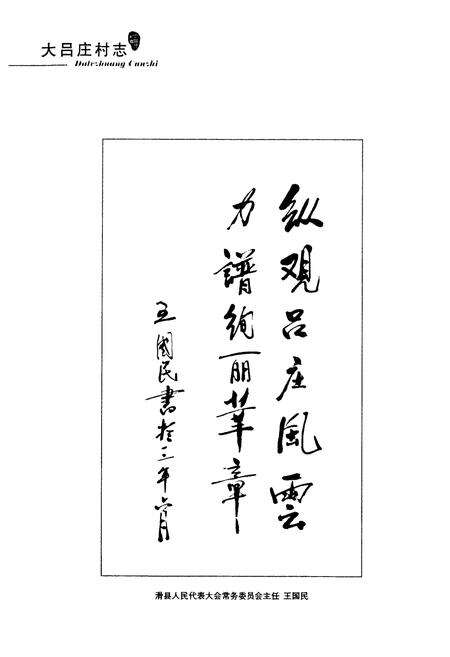 大吕庄村志
Dalvzhuang Cunzhi
纵观吕庄风雲
力譜绚丽華章
王國民書於二年六月
滑县人民代表大会常务委员会主任 王国民